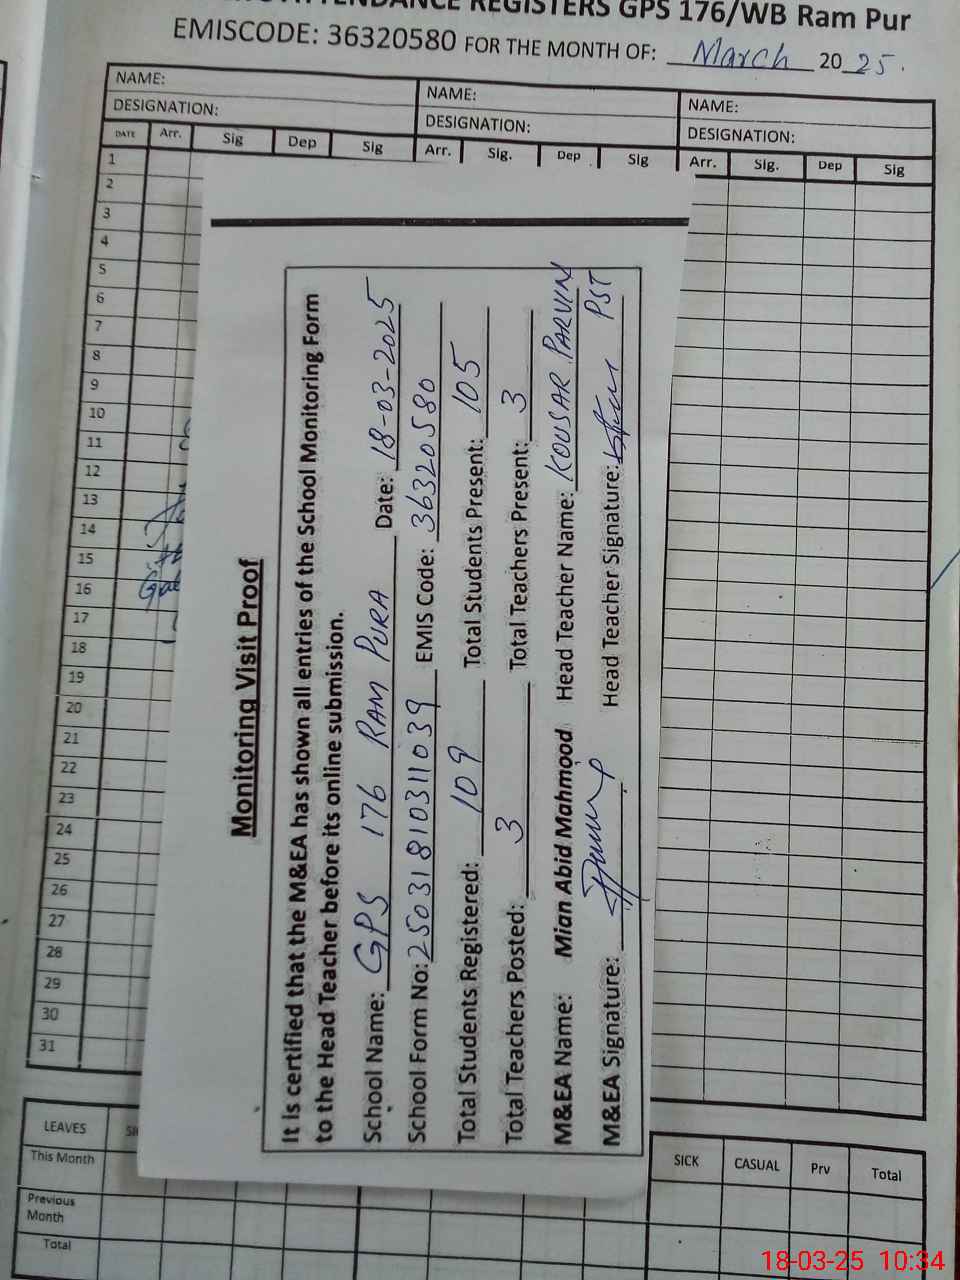 ATTENDANCE REGISTERS GPS 176/WB Ram Pur
EMISCODE: 36320580 FOR THE MONTH OF: March 2025.
NAME: NAME: NAME:
DESIGNATION: DESIGNATION: DESIGNATION:
DATE Arr. Sig Dep Sig Arr. Sig. Dep Sig Arr. Sig. Dep Sig
1
2
3
4
5
6
7
8
9
10
11
12
13
14
15
16
17
18
19
20
21
22
23
24
25
26
27
28
29
30
31
Monitoring Visit Proof
It is certified that the M&EA has shown all entries of the School Monitoring Form
to the Head Teacher before its online submission.
School Name: GPS 176 RAM PURA Date: 18-03-2025
School Form No: 25031810311039 EMIS Code: 36320580
Total Students Registered: 109 Total Students Present: 105
Total Teachers Posted: 3 Total Teachers Present: 3
M&EA Name: Mian Abid Mahmood Head Teacher Name: KOUSAR PARVIN
M&EA Signature: Head Teacher Signature: PST
LEAVES SICK CASUAL Prv Total
This Month
Previous
Month
Total
18-03-25 10:34